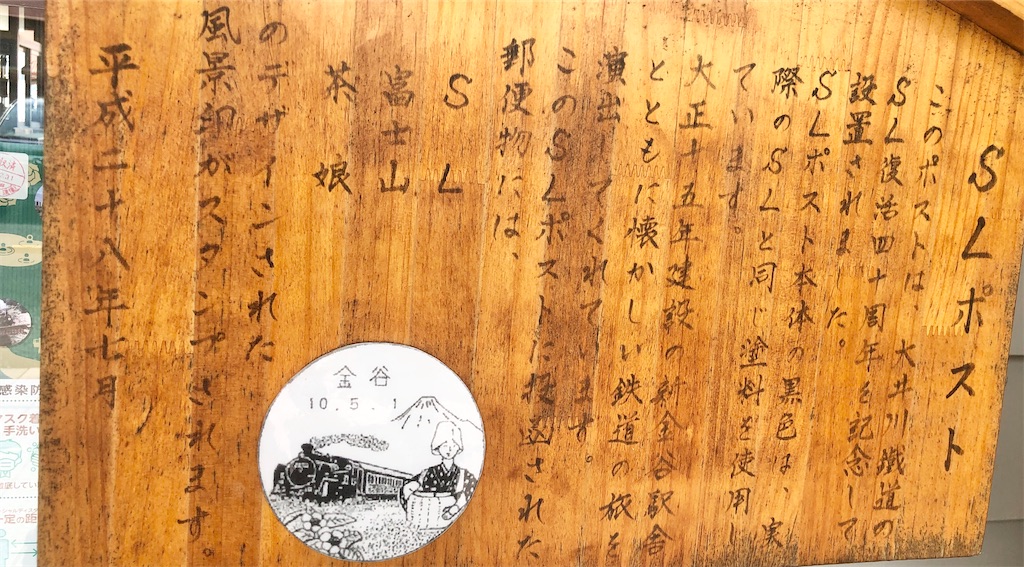 SLポスト
このポストは、大井川鐵道の
SL復活四十周年を記念して
設置されました。
SLポスト本体の黒色は、実
際のSLと同じ塗料を使用し
ています。
大正十五年建設の新金谷駅舎
とともに懐かしい鉄道の旅を
演出してくれています。
このSLポストに投函された
郵便物には、
SL
富士山
茶娘
のデザインされた
風景印がスタンプされます。
平成二十八年七月
金谷
10.5.1
感染防
マスク着
手洗い
定の距